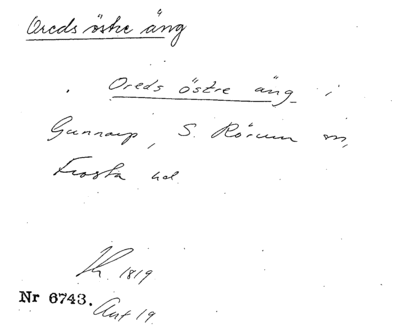 Oreds östre äng
Oreds östre äng i
Gunnarp, S. Rörum sn,
Frosta hd
1819
Nr 6743. Ant 19